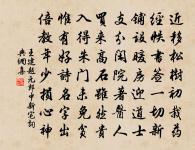 近移松樹初栽藥
經帙書簽一切新
鋪設暖房迎道士
支分閑院著醫人
買來高石雖然貴
入得朱門未免貧
惟有好詩名字出
倍教年少損心神
王建題元郎中新宅